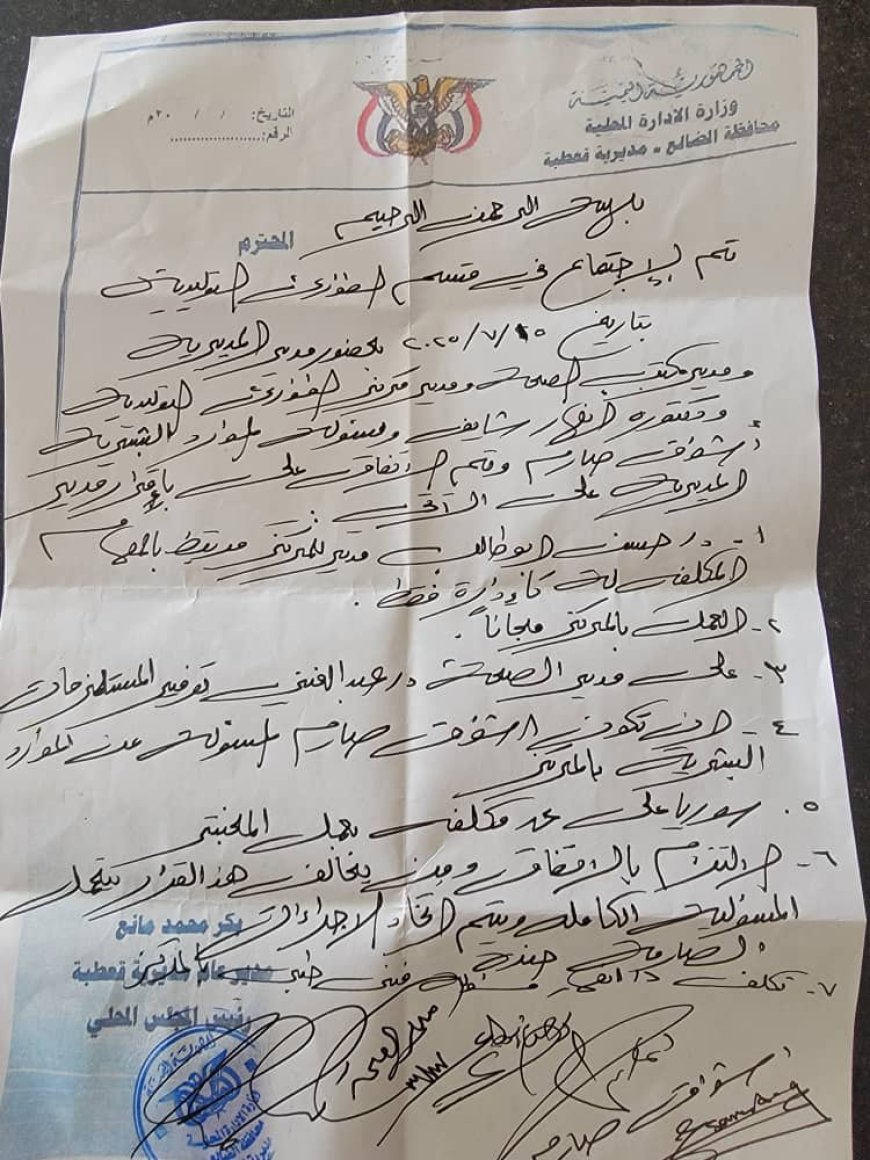 الجمهورية اليمنية
وزارة الادارة المحلية
محافظة الضالع - مديرية قعطبة
التاريخ: / / ٢٠م
الرقم: ......................
بسم الله الرحمن الرحيم
المحترم
تم الإجتماع في قسم الطوارئ التوليدية
بتاريخ ١٥/٧/٢٠٢٥ بحضور مدير المديرية
ومدير مكتب الصحة ومدير مركز الطوارئ التوليدية
ودكتوره أنهار شايف ومسئولة الموارد البشرية
أشواق صارم وتم الاتفاق على بإقرار مدير
المديرية على الآتي
١- د. حسن ابوطالب مدير للمركز فقط بالمهام
المكلف له كإدارة فقط.
٢- العمل بالمركز مجاناً.
٣- على مدير الصحة د. عبدالغني توفير المستلزمات
٤- ان تكون اشواق صارم مسئولة عن الموارد
البشرية بالمركز
٥. سوريا علي مكلف بعمل المختبر
٦- الالتزام بالاتفاق ومن يخالف هذا القرار يتحمل
المسؤلية الكامله ويتم اتخاذ الاجراءات
الصارمة
٧- تكلف فني طبي بالمركز
بكر محمد مانع
مدير عام مديرية قعطبة
رئيس المجلس المحلي
أشواق صارم